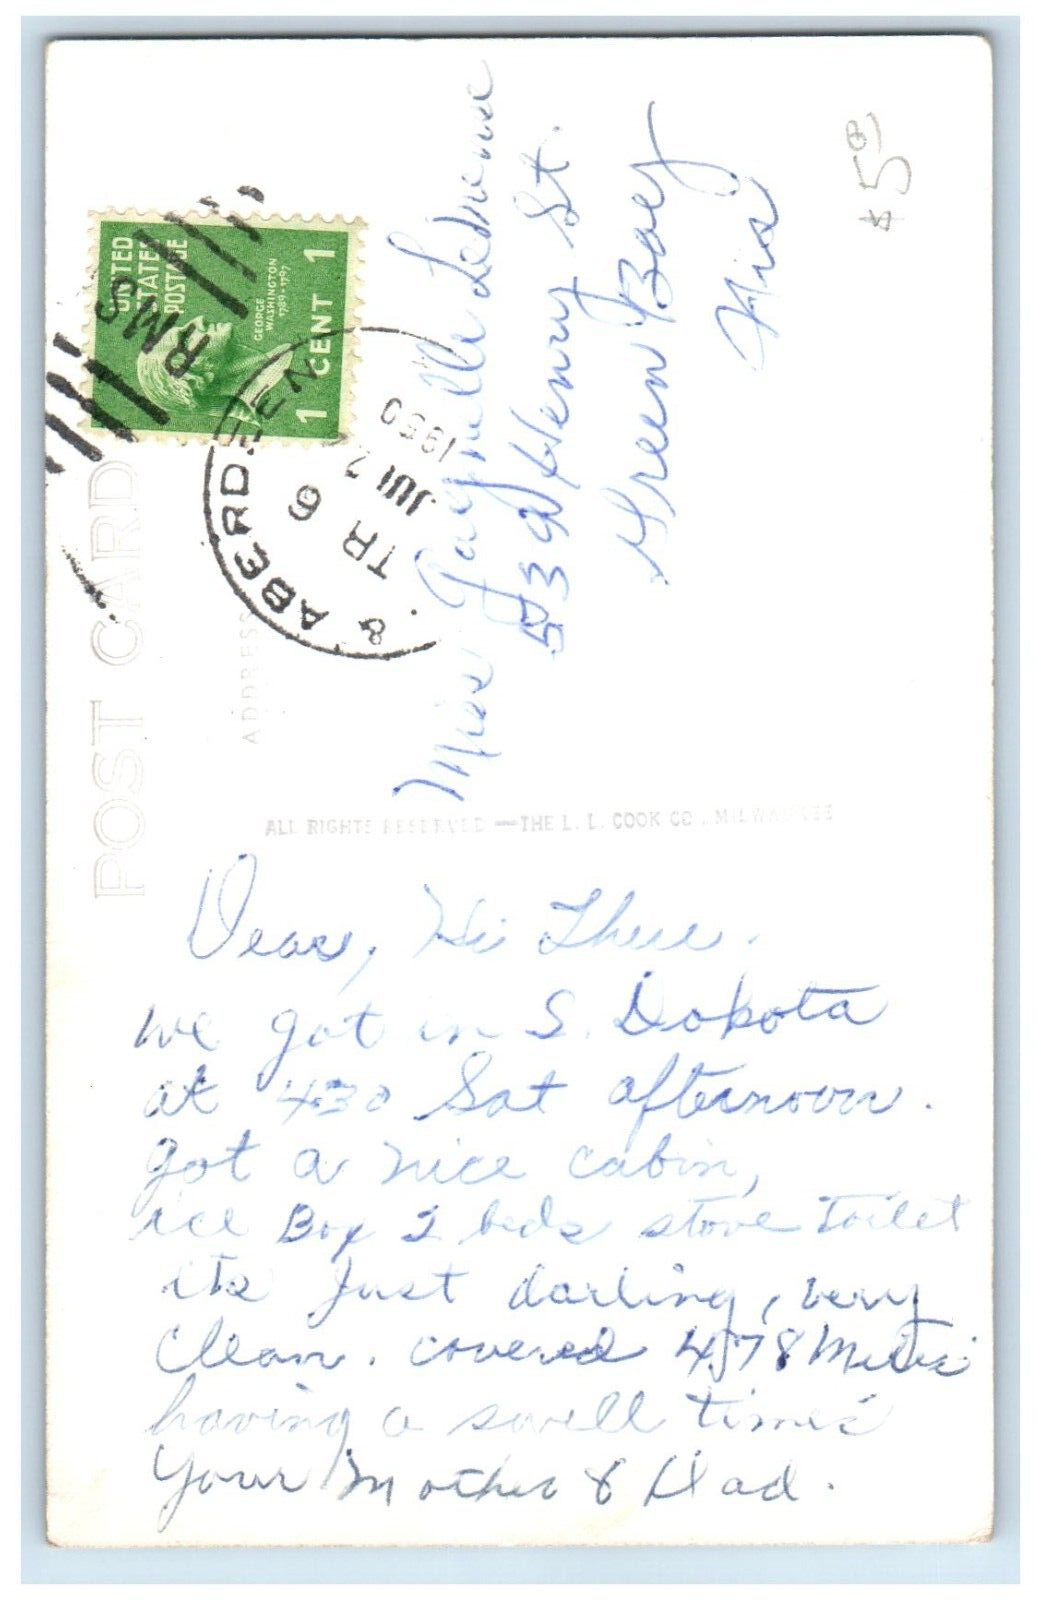 POST CARD
ADDRESS
UNITED
STATES
POSTAGE
GEORGE
WASHINGTON
1789-1797
1 CENT 1
RMS
& ABERDEEN
TR 6
JUL 2
1950
$5
Miss
539 Henry St.
Green Bay
Wis
ALL RIGHTS RESERVED—THE L. L. COOK CO., MILWAUKEE
Dear, Hi There.
we got in S. Dakota
at 430 Sat afternoon.
got a nice cabin,
ice Box 2 beds stove toilet
its Just darling, very
Clean. covered 478 Miles
having a swell time
Your Mother & Dad.